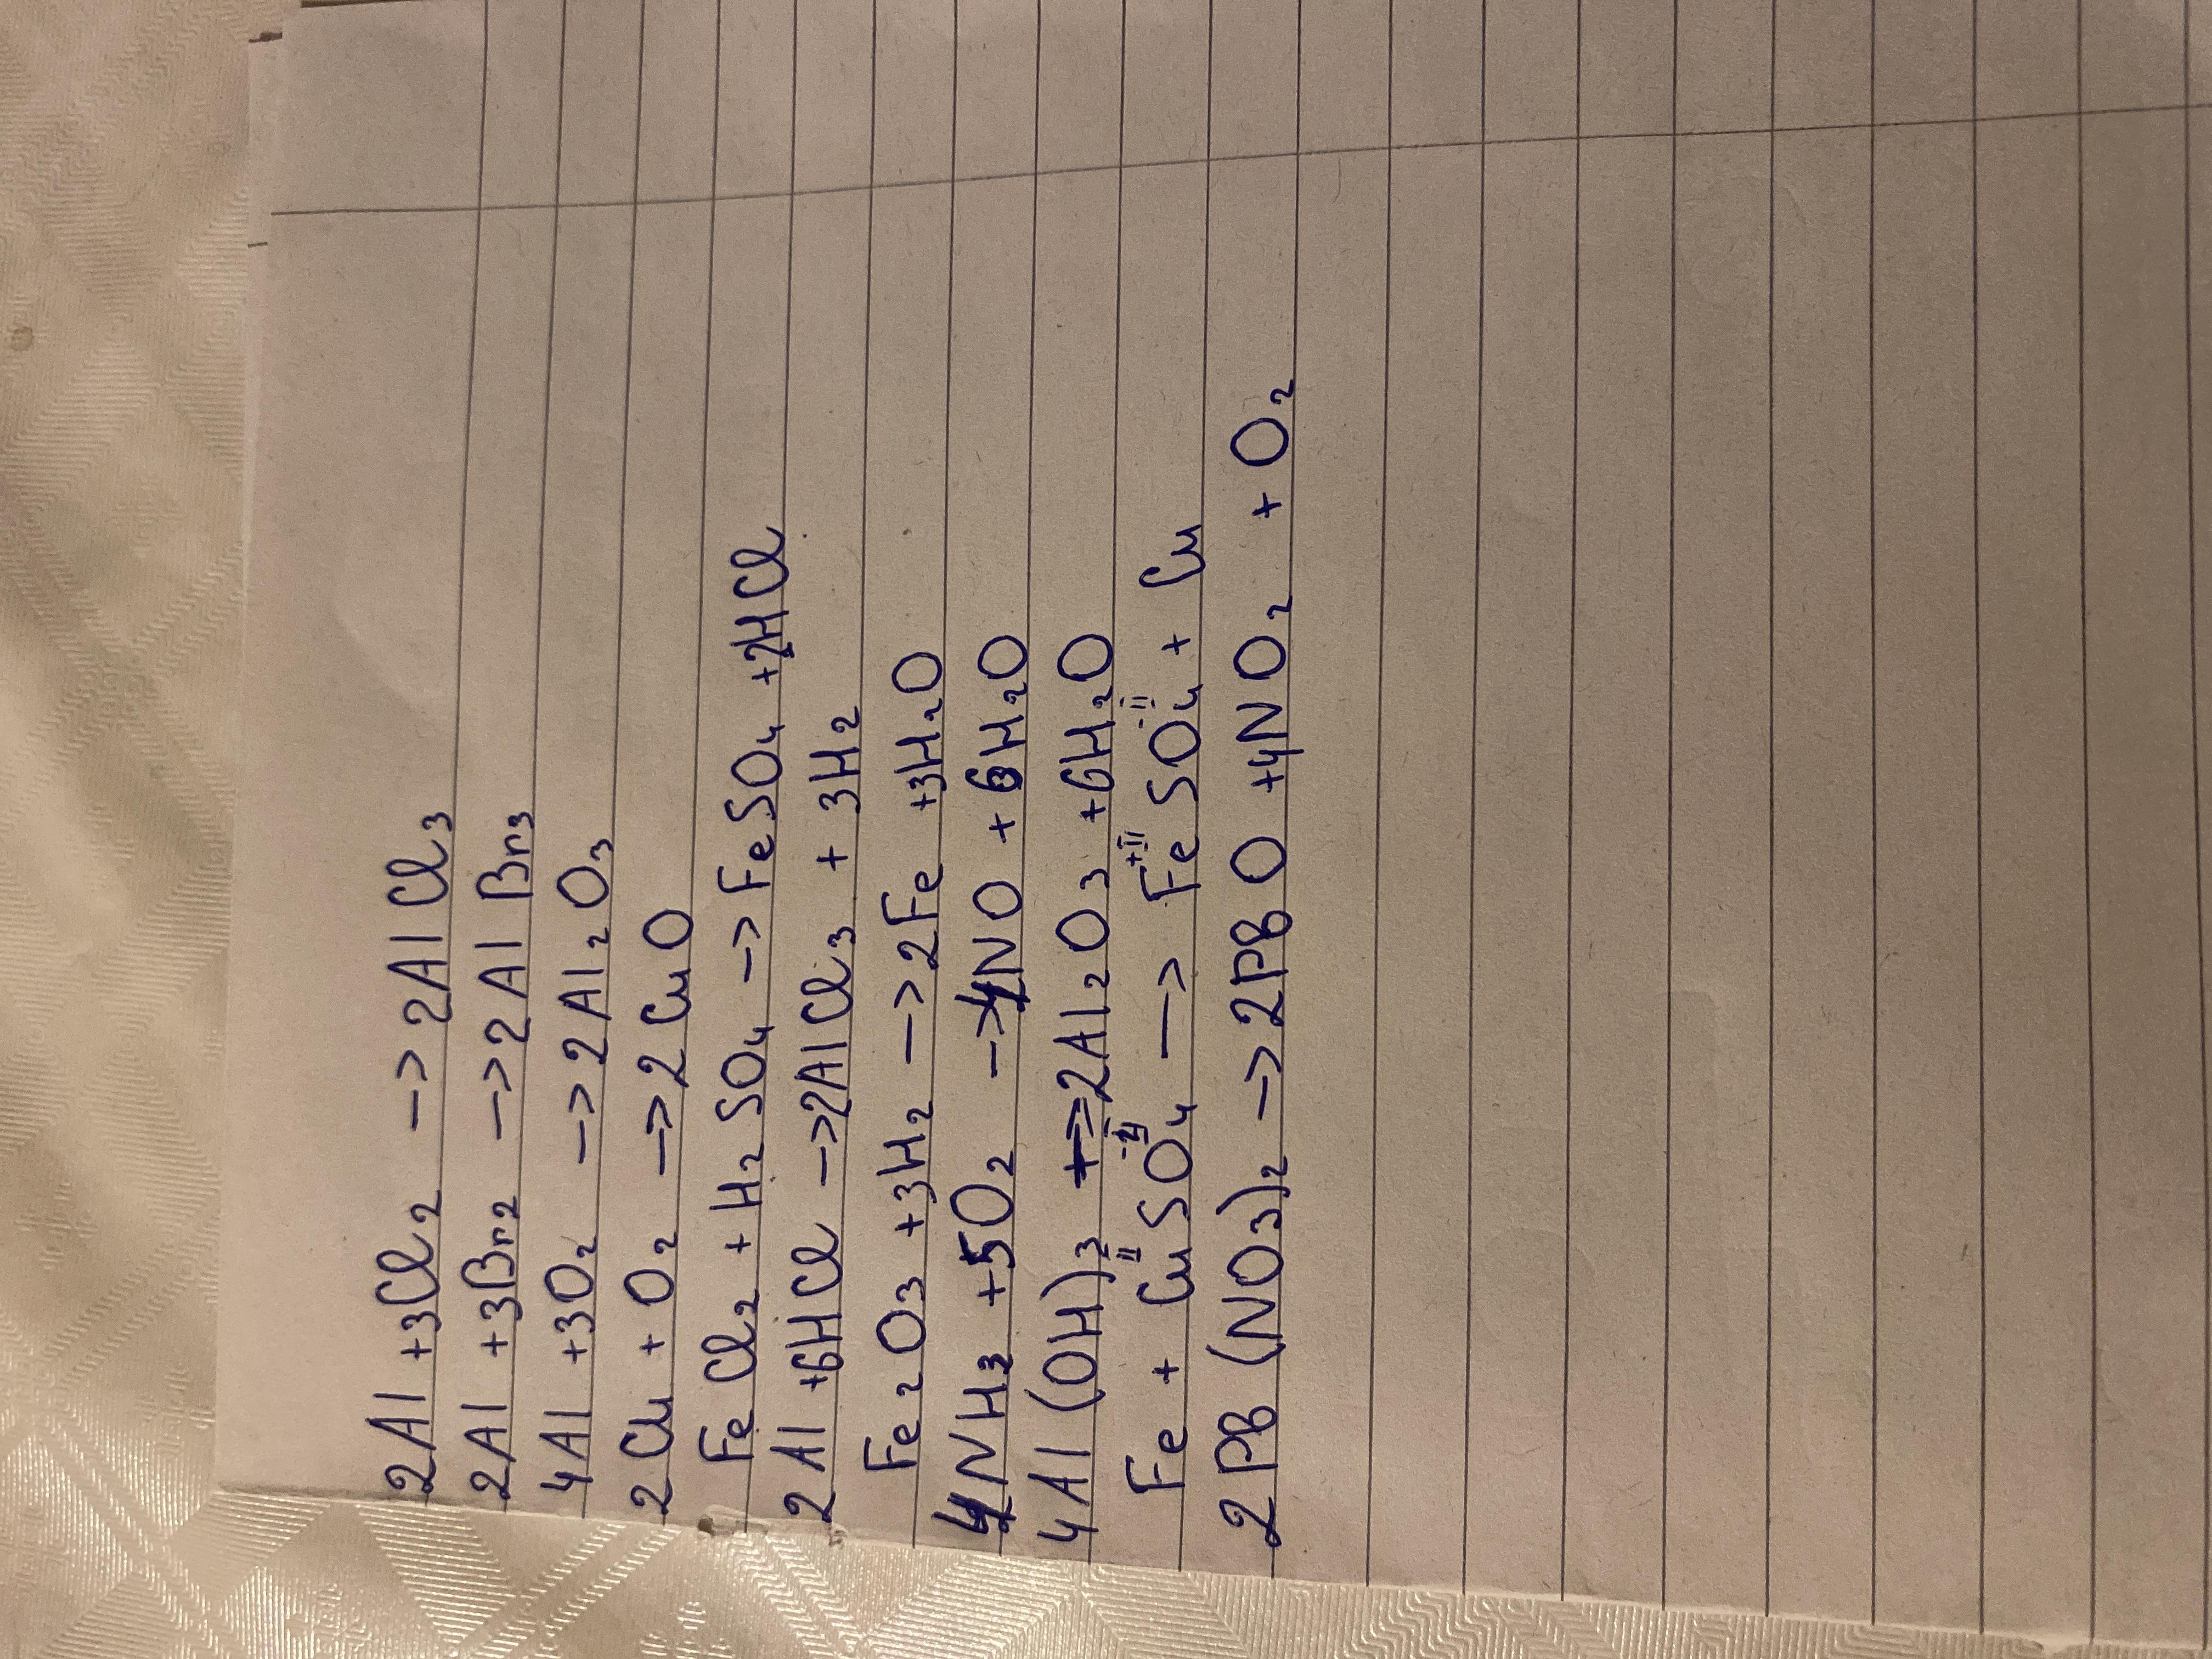 2Al + 3Cl₂ -> 2AlCl₃
2Al + 3Br₂ -> 2AlBr₃
4Al + 3O₂ -> 2Al₂O₃
2Cu + O₂ -> 2CuO
FeCl₂ + H₂SO₄ -> FeSO₄ + 2HCl
2Al + 6HCl -> 2AlCl₃ + 3H₂
Fe₂O₃ + 3H₂ -> 2Fe + 3H₂O
4NH₃ + 5O₂ -> 4NO + 6H₂O
4Al(OH)₃ -> 2Al₂O₃ + 6H₂O
Fe + Cu^II SO₄^-II -> Fe^+II SO₄^-II + Cu
2PB(NO₃)₂ -> 2PBO + 4NO₂ + O₂